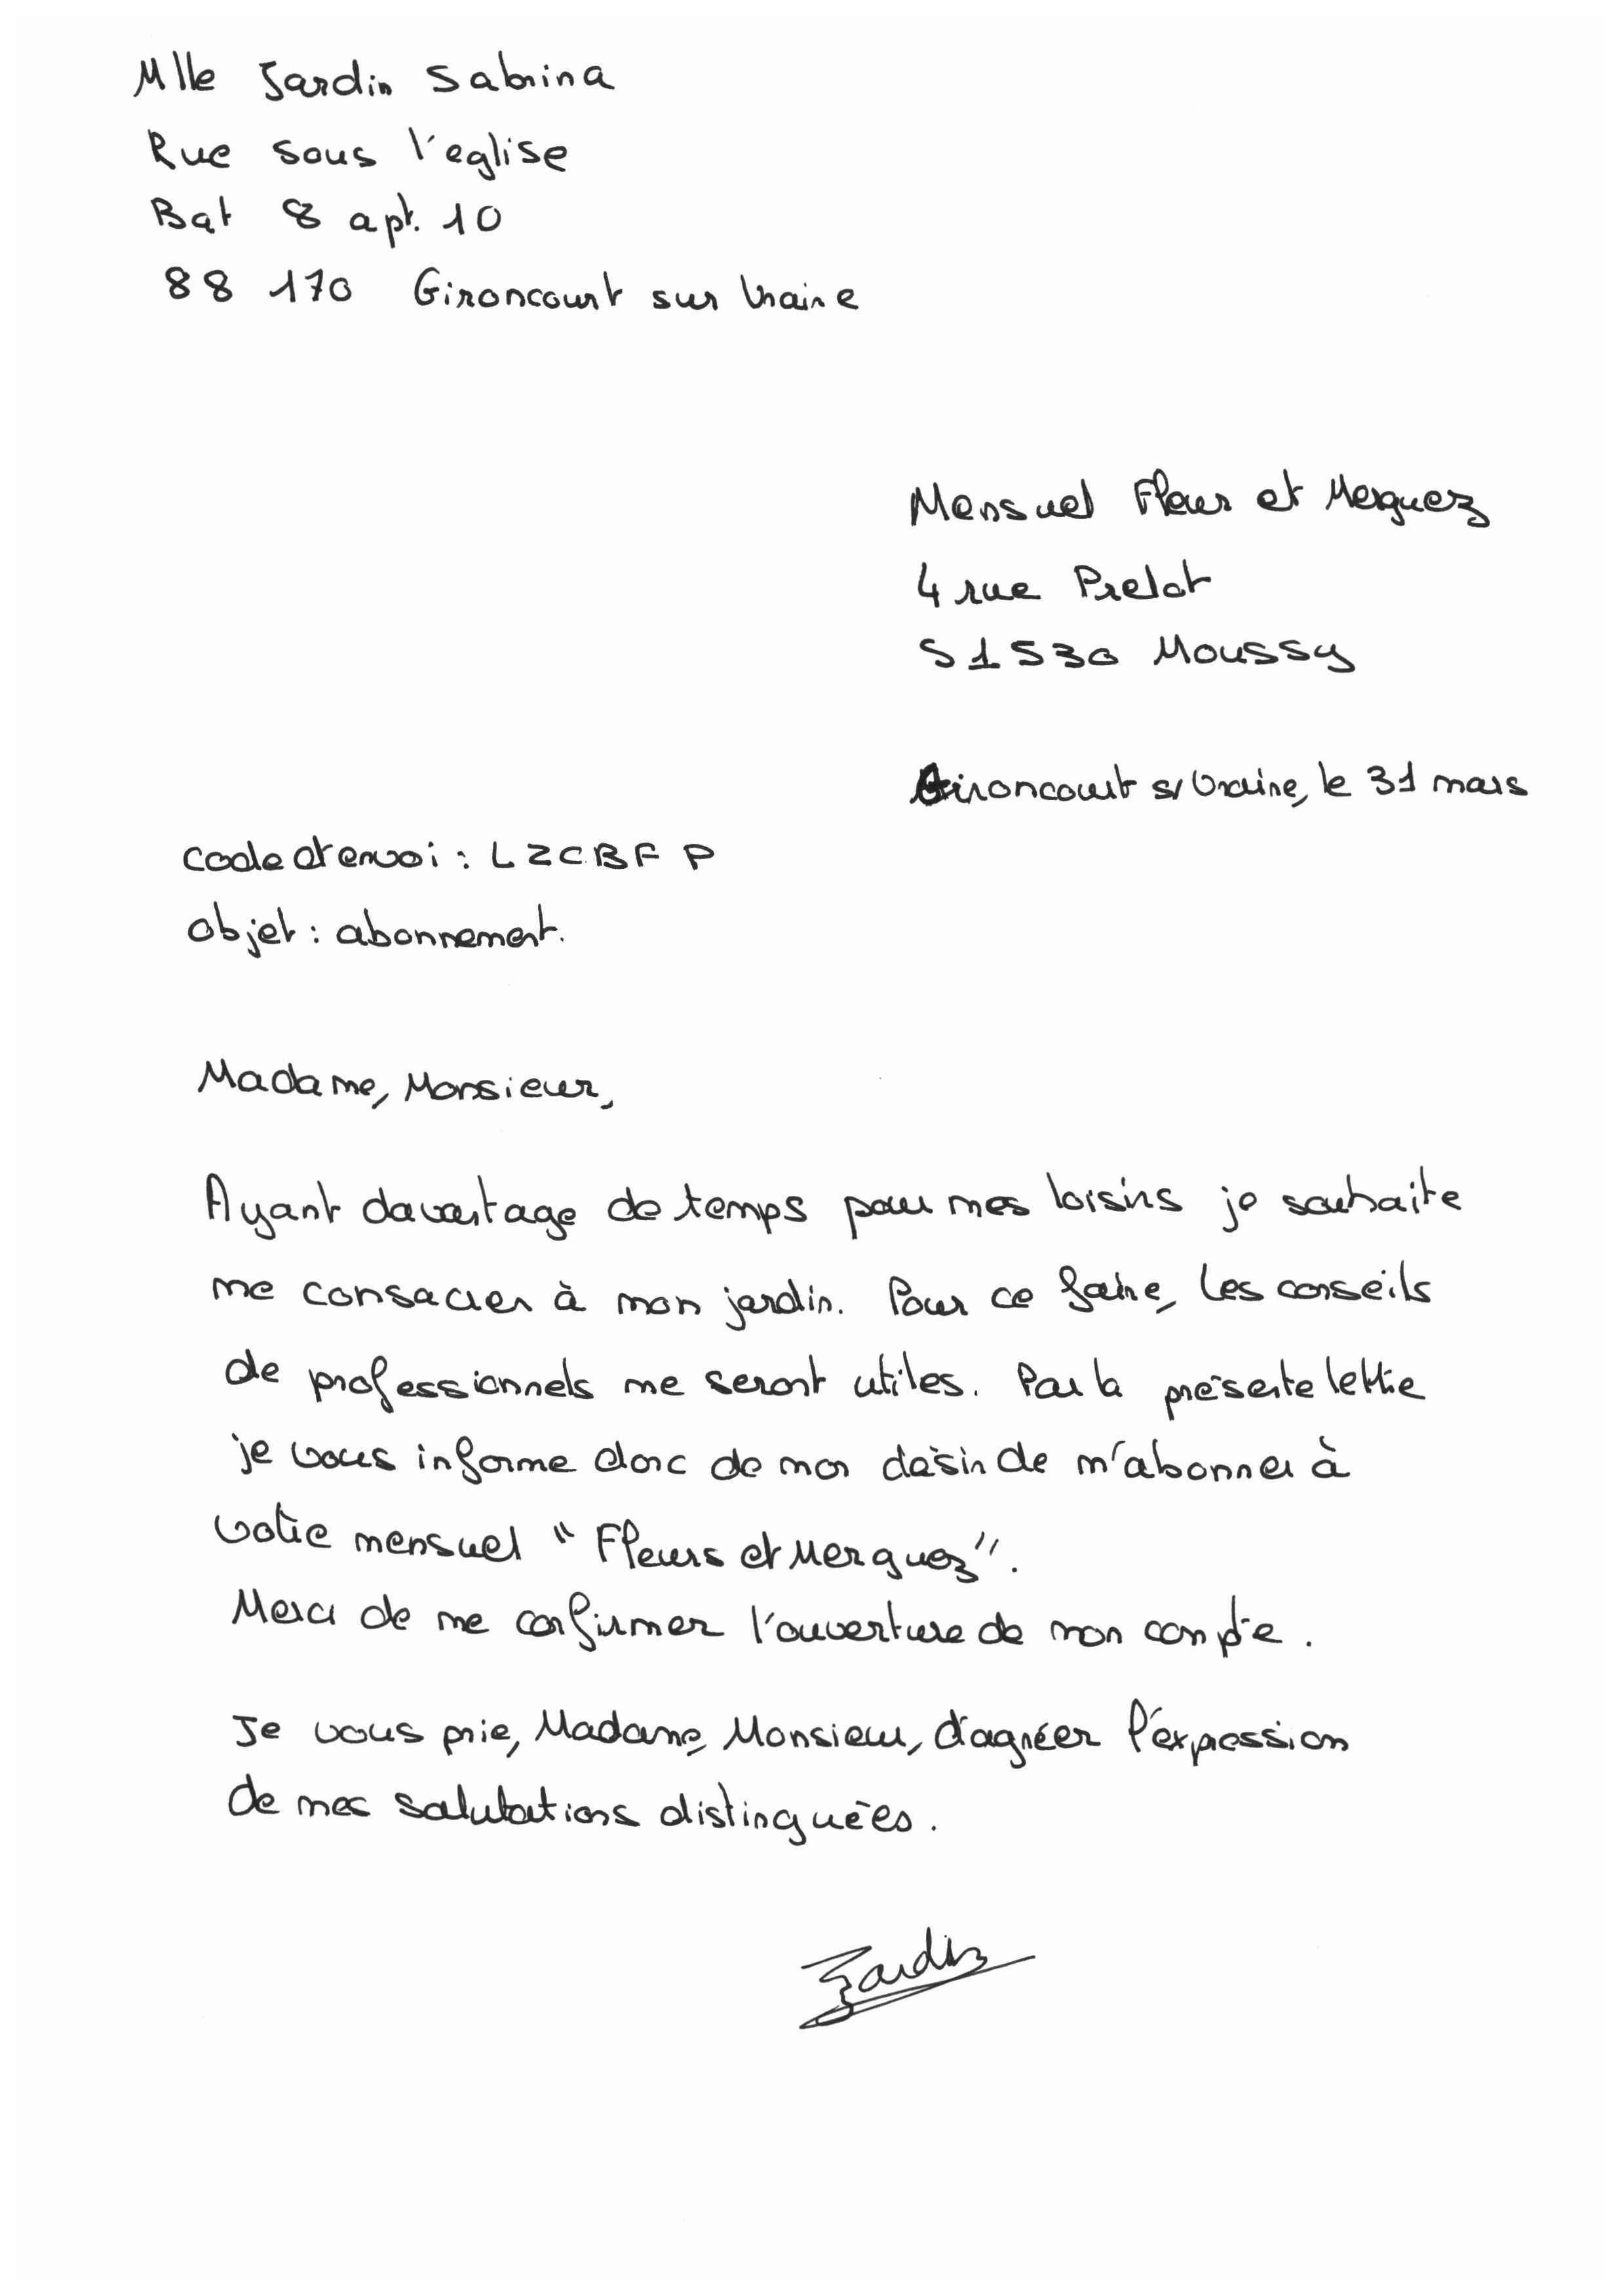 Mlle Jardin Sabrina
Rue sous l'eglise
Bat 8 apt. 10
88 170 Gironcourt sur Vraine
Mensuel Fleurs et Merguez
4 rue Prelot
51530 Moussy
Gironcourt s/Vraine, le 31 mars
code d'envoi : LZCBFP
objet : abonnement.
Madame, Monsieur,
Ayant davantage de temps pour mes loisirs je souhaite
me consacrer à mon jardin. Pour ce faire, les conseils
de professionnels me seront utiles. Par la présente lettre
je vous informe donc de mon désir de m'abonner à
votre mensuel "Fleurs et Merguez".
Merci de me confirmer l'ouverture de mon compte.
Je vous prie, Madame, Monsieur, d'agréer l'expression
de mes salutations distinguées.
Jardin